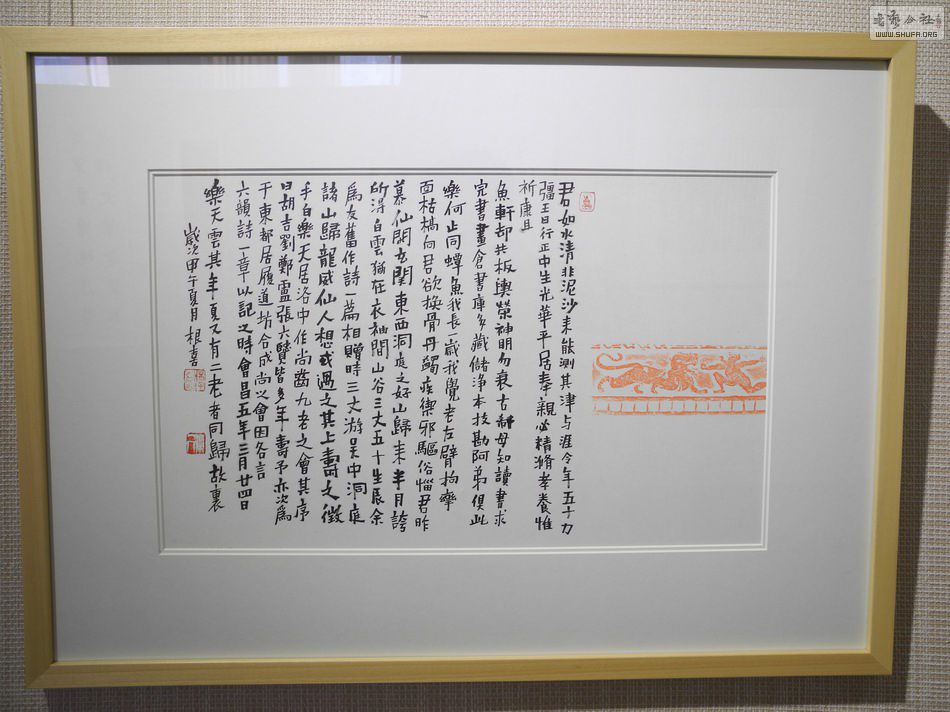 君如水清非泥沙来能測其津与涯今年五十力
彊王日行正中生光華平居奉親必精滫孝養惟
祈康且
魚軒却共板輿榮神明勿衰古稀母知讀書求
完書畫倉書庫多藏儲净本技勘阿弟俱此
樂何止同蟫魚我長一歲我覺老左臂拘攣
面枯槁向君欲換骨丹蠲疾禦邪驅俗惱君昨
慕仙閒古閒東西洞庭之好山歸来半月誇
所得白雲猶在衣袖間山谷三丈五十生辰余
為友舊作詩一篇相贈時三丈游吴中洞庭
諸山歸龍威仙人想或遇之其上壽之徵
乎白樂天居洛中作尚齒九老之會其序
曰胡吉劉鄭盧張六賢皆多年壽予亦次焉
于東都居履道坊合成尚之會因各言
六韻詩一章以記之時會昌五年三月廿四日
樂天雲其年夏又有二老者同歸故裏
歲次甲午夏月根喜
WWW.SHUFA.ORG